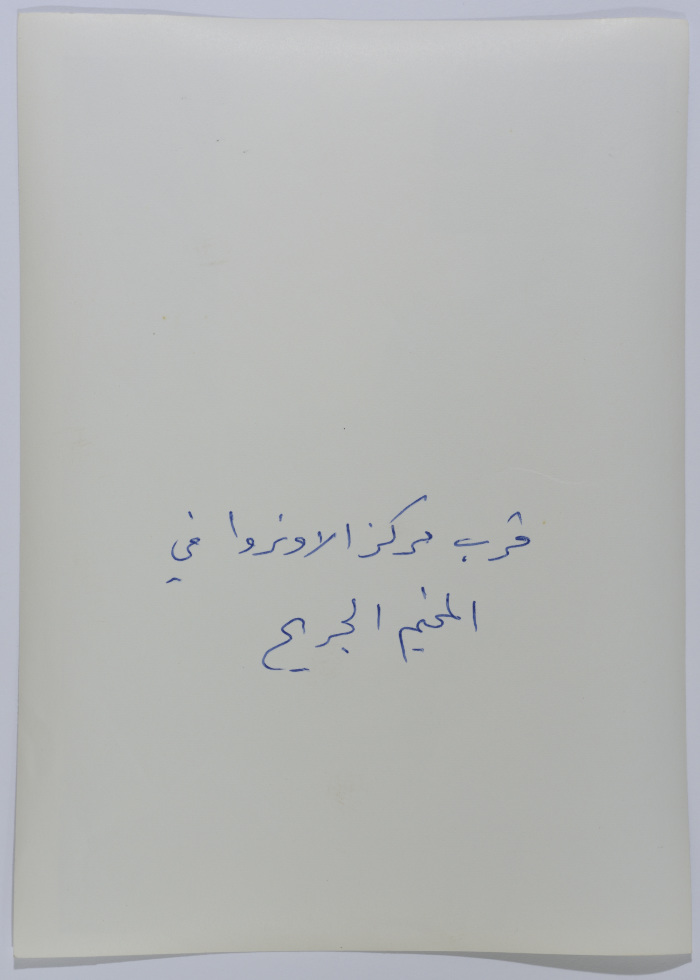 قرب مركز الاونروا في
المخيم الجريح